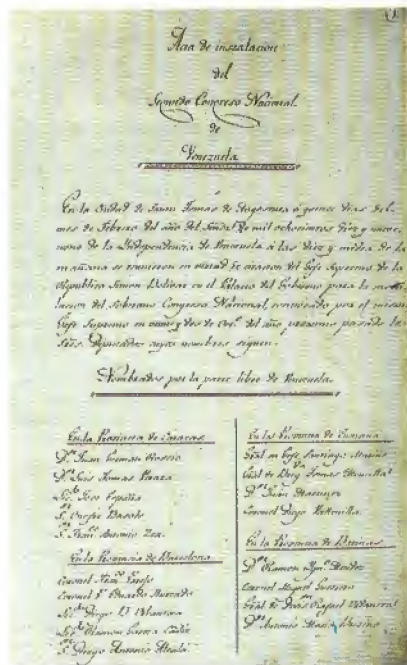 Acta de instalacion
del
Segundo Congreso Nacional
de
Venezuela
En la Ciudad de Santo Tomas de Angostura á quince dias del
mes de Febrero del año del Señor de mil ochocientos diez y nueve,
nono de la Independencia de Venezuela á las diez y media de la
mañana se reunieron en virtud de citacion del Gefe Supremo de la
Republica Simon Bolivar en el Palacio del Gobierno para la insta
lacion del Soberano Congreso Nacional, convocado por el mismo
Gefe Supremo en veinte y dos de del año proximo pasado los
Señs. Diputados cuyos nombres siguen.
Nombrados por la parte libre de Venezuela.
En la Provincia de Caracas
Dr. Juan German Roscio
Dr. Luis Tomas Peraza
Jose España
Onofre Basalo
Antonio Zea
En la Provincia de Barcelona
Coronel Parejo
Coronel Eduardo Hurtado
Diego B. Urbaneja
Ramon Garcia Cadiz
Diego Antonio Alcala
En la Provincia de Cumana
Gral en Gefe Santiago Mariño
Gral de Brig. Tomas Montilla
Dr. Juan Martinez
Coronel Diego Vallenilla
En la Provincia de Barinas
Dr. Ramon Ign. Mendez
Coronel Miguel Guerrero
Gral de Rafael Urdaneta
Dr. Antonio Maria Briceño